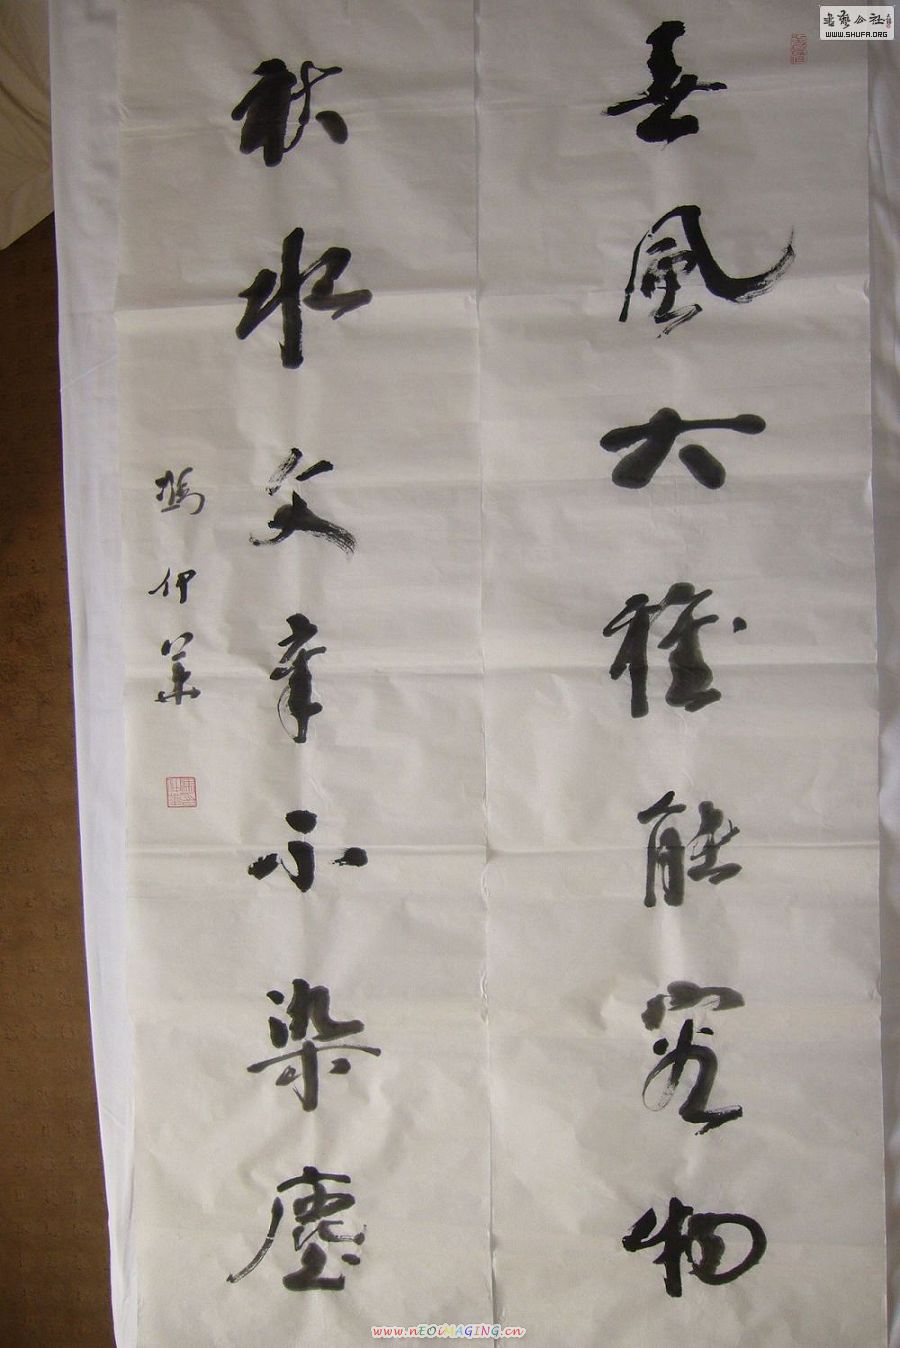 春風大雅能容物
秋水文章不染塵
書藝公社
WWW.SHUFA.ORG
www.nEOiMAGING.cn